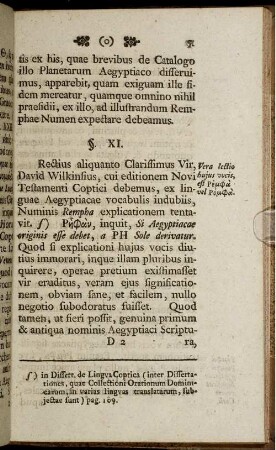 (o) 51
tis ex his, quae brevibus de Catalogo
illo Planetarum Aegyptiaco disserui-
mus, apparebit, quam exiguam ille fi-
dem mereatur, quamque omnino nihil
praesidii, ex illo, ad illustrandum Rem-
phae Numen expectare debeamus.
§. XI.
Rectius aliquanto Clarissimus Vir,
David Wilkinsius, cui editionem Novi
Testamenti Coptici debemus, ex lin-
guae Aegyptiacae vocabulis indubiis,
Numinis Rempha explicationem tenta-
vit. ſ) Ρηφὰν, inquit, Si Aegyptiacae
originis esse debet, a PH Sole derivatur.
Quod si explicationi hujus vocis diu-
tius immorari, inque illam pluribus in-
quirere, operae pretium existimasset
vir eruditus, veram ejus significatio-
nem, obviam sane, et facilem, nullo
negotio subodoratus fuisset. Quod
tamen, ut fieri possit, genuina primum
& antiqua nominis Aegyptiaci Scriptu-
D 2 ra,
Vera lectio
hujus vocis,
est Ρημφὰ
vel Ρεμφὰ.
ſ) in Dissert. de Lingva Coptica (inter Disserta-
tiones, quae Collectioni Orationum Domini-
carum, in varias lingvas translatarum, sub-
jectae sunt) pag. 109.